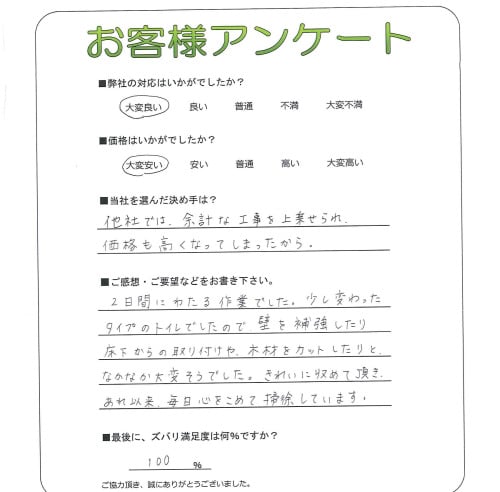 お客様アンケート
■弊社の対応はいかがでしたか?
大変良い 良い 普通 不満 大変不満
■価格はいかがでしたか?
大変安い 安い 普通 高い 大変高い
■当社を選んだ決め手は?
他社では、余計な工事を上乗せられ、
価格も高くなってしまったから。
■ご感想・ご要望などをお書き下さい。
2日間にわたる作業でした。少し変わった
タイプのトイレでしたので壁を補強したり
床下からの取り付けや、木材をカットしたりと、
なかなか大変そうでした。きれいに収めて頂き、
あれ以来、毎日心をこめて掃除しています。
■最後に、ズバリ満足度は何%ですか?
100 %
ご協力頂き、誠にありがとうございました。